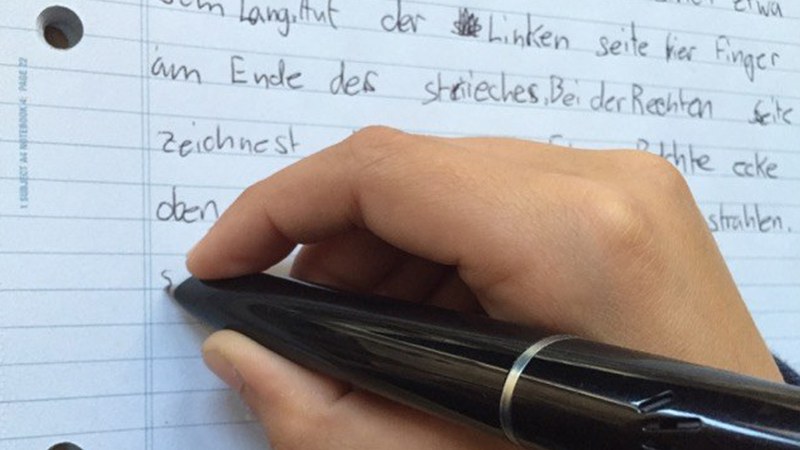 etwa
Langhut der Linken seite vier Finger
am Ende des strieches. Bei der Rechten seite
zeichnest Richte ecke
oben strahlen.
s
1 SUBJECT A4 NOTEBOOK 4: PAGE 22